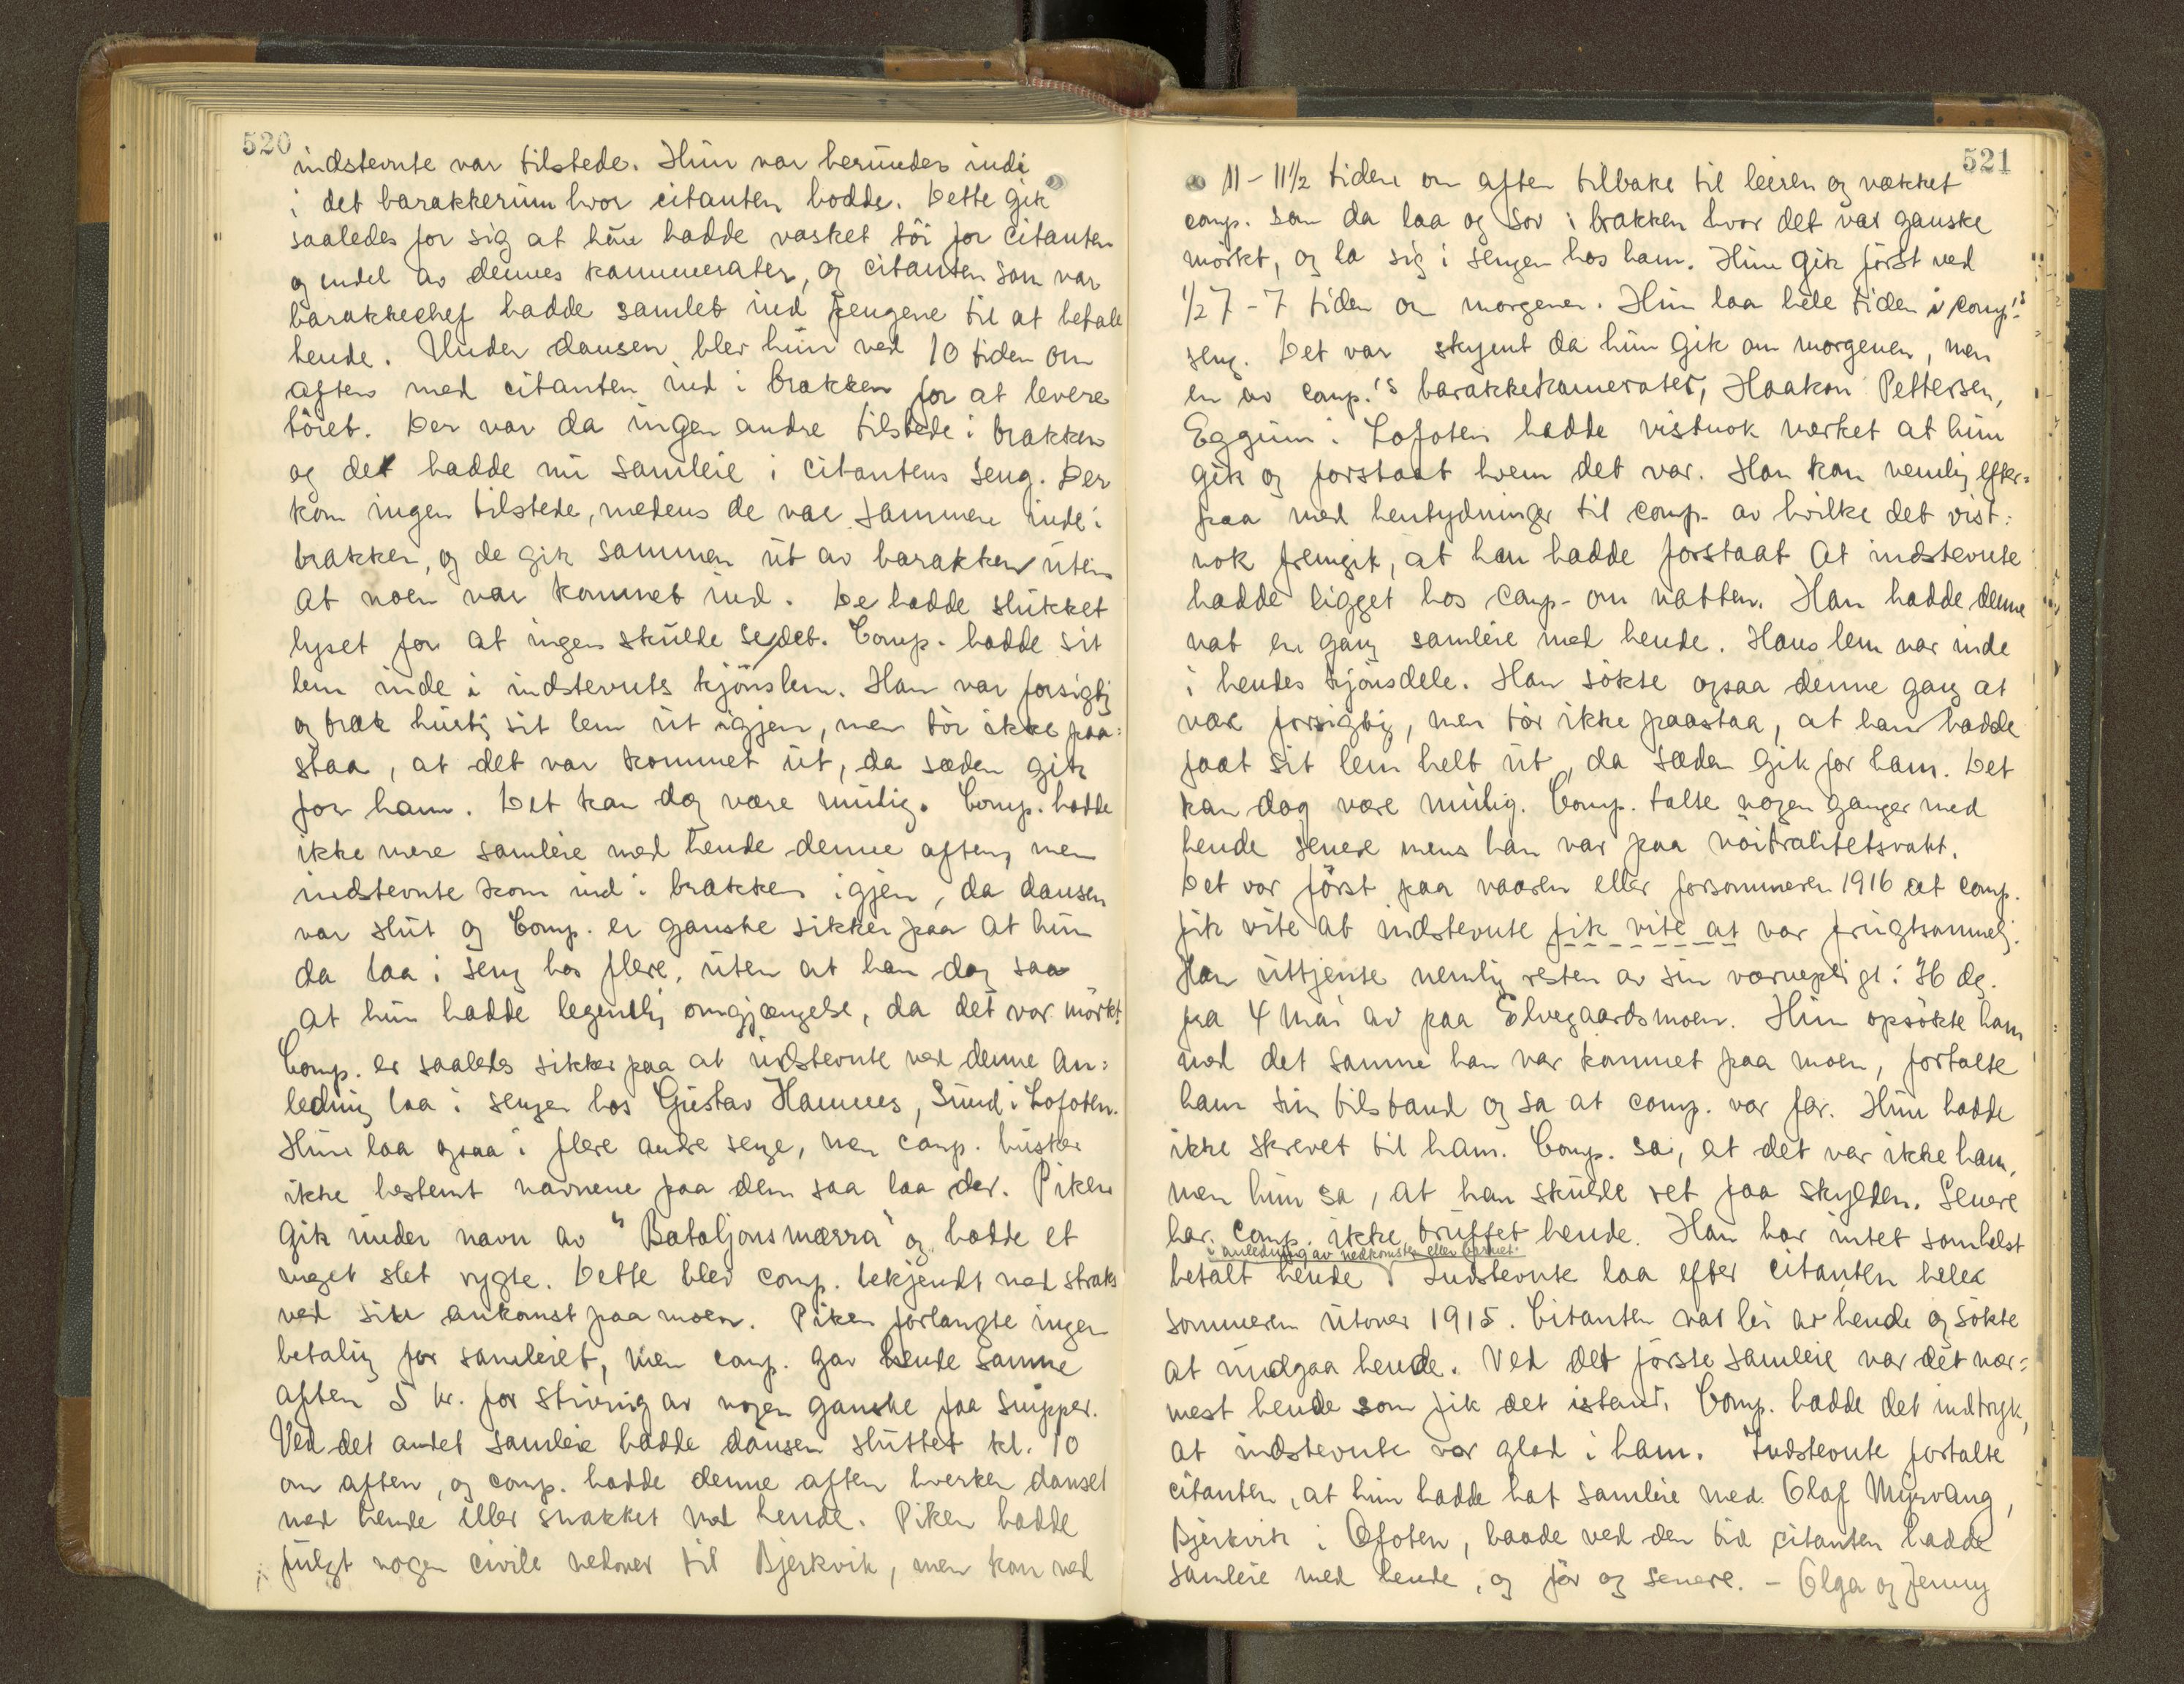 520
indstevnte var tilstede. Hun var herunder inde
i det barakkerum hvor citanten bodde. Dette gik
saaledes for sig at hun hadde vasket töi for citanten
og endel av dennes kammerater, og citanten som var
barakkechef hadde samlet ind pengene til at betale
hende. Under dansen blev hun ved 10 tiden om
aften med citanten ind i brakken for at levere
töiet. Der var da ingen andre tilstede i brakken
og det hadde nu samleie i citantens seng. Der
kom ingen tilstede, medens de var sammen inde i
brakken, og de gik sammen ut av barakken uten
at noen var kommet ind. De hadde slukket
lyset for at ingen skulde se det. Comp. hadde sit
lem inde i indstevntes kjönslem. Han var forsigtig
og trak hurtig sit lem ut igjen, men tör ikke paa-
staa, at det var kommet ut, da sæden gik
for ham. Det kan dog være mulig. Comp. hadde
ikke mere samleie med hende denne aften, men
indstevnte kom ind i brakken igjen, da dansen
var slut og Comp. er ganske sikker paa at hun
da laa i seng hos flere, uten at han dog saa
at hun hadde legemlig omgjængelse, da det var mörkt.
Comp. er saaledes sikker paa at indstevnte ved denne an-
ledning laa i sengen hos Gustav Hannes, Sund i Lofoten.
Hun laa ogsaa i flere andre senge, men comp. husker
ikke bestemt navnene paa dem saa laa der. Piken
gik under navn av "Bataljonsmærra" og hadde et
meget slet rygte. Dette blev comp. bekjendt med straks
ved sin ankomst paa moen. Piken forlangte ingen
betaling for samleiet, men comp. gav hende samme
aften 5 kr. for stivning av nogen ganske faa snipper.
Ved det andet samleie hadde dansen sluttet kl. 10
om aften, og comp. hadde denne aften hverken danset
med hende eller snakket med hende. Piken hadde
fulgt nogen civile nedover til Bjerkvik, men kom ved
521
11 - 11½ tiden om aften tilbake til leiren og vækket
comp. som da laa og sov i brakken hvor det var ganske
mörkt, og la sig i sengen hos ham. Hun gik först ved
½7 - 7 tiden om morgenen. Hun laa hele tiden i comp.'s
seng. Det var skyemt da hun gik om morgenen, men
en av comp.'s barakkekamerater, Haakon Pettersen,
Eggum i Lofoten hadde vistnok merket at hun
gik og forstaat hvem det var. Han kom nemlig efter-
paa med hentydninger til comp. av hvilke det vist-
nok fremgik, at han hadde forstaat at indstevnte
hadde ligget hos comp. om natten. Han hadde denne
nat en gang samleie med hende. Hans lem var inde
i hendes kjönsdele. Han sökte ogsaa denne gang at
være forsigtig, men tör ikke paastaa, at han hadde
faat sit lem helt ut, da sæden gik for ham. Det
kan dog være mulig. Comp. talte nogen ganger med
hende senere mens han var paa nöitralitetsvakt.
Det var först paa vaaren eller forsommeren 1916 at comp.
fik vite at indstevnte fik vite at var frugtsommelig.
Han uttjente nemlig resten av sin værnepligt: 36 dg.
fra 4 mai av paa Elvegaardsmoen. Hun opsökte ham
med det samme han var kommet paa moen, fortalte
ham sin tilstand og sa at comp. var far. Hun hadde
ikke skrevet til ham. Comp. sa, at det var ikke ham,
men hun sa, at han skulde ret faa skylden. Senere
har comp. ikke truffet hende. Han har intet somhelst
i anledning av nedkomsten eller barnet.
betalt hende Indstevnte laa efter citanten hele
sommeren utover 1915. Citanten var lei av hende og sökte
at undgaa hende. Ved det förste samleie var det nær-
mest hende som fik det istand. Comp. hadde det indtryk,
at indstevnte var glad i ham. Indstevnte fortalte
citanten, at hun hadde hat samleie med Olaf Myrvang,
Bjerkvik i Ofoten, baade ved den tid citanten hadde
samleie med hende, og för og senere. - Olga og Jenny